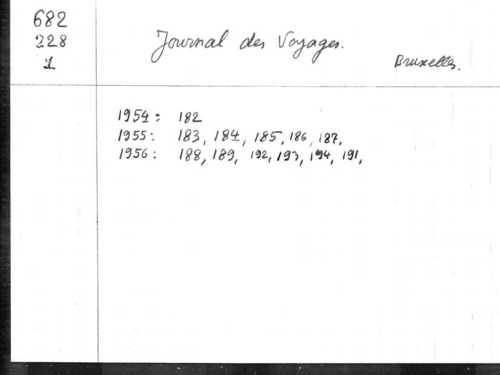 682
228
1
Journal des Voyages.
Bruxelles.
1954: 182
1955: 183, 184, 185, 186, 187,
1956: 188, 189, 192, 193, 194, 191,